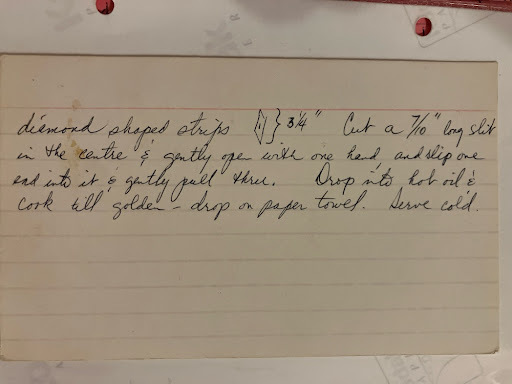 diamond shaped strips } 3 1/4" Cut a 7/10" long slit
in the centre & gently open with one hand, and slip one
end into it & gently pull thru. Drop into hot oil &
cook till golden - drop on paper towel. Serve cold.